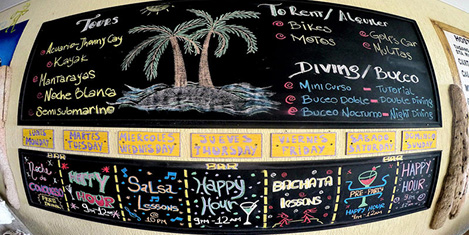 Tours
Acuario-Jhonny Cay
Kayak
Mantarayas
Noche Blanca
Semisubmarino
To Rent / Alquiler
Bikes
Motos
Golf's Car
Mulitas
Diving / Buceo
Mini Curso - Tutorial
Buceo Doble - Double Diving
Buceo Nocturno - Night Diving
LUNES
MONDAY
MARTES
TUESDAY
MIERCOLES
WEDNESDAY
JUEVES
THURSDAY
VIERNES
FRIDAY
SABADO
SATURDAY
DOMINGO
SUNDAY
BAR
Noche
HAPPY
HOUR
9m-12am
Salsa
Lessons
BAR
Happy
Hour
9m-12am
Bachata
lessons
BAR
PRE-PARTY
HAPPY
HOUR
HAPPY
HOUR
9m-12am